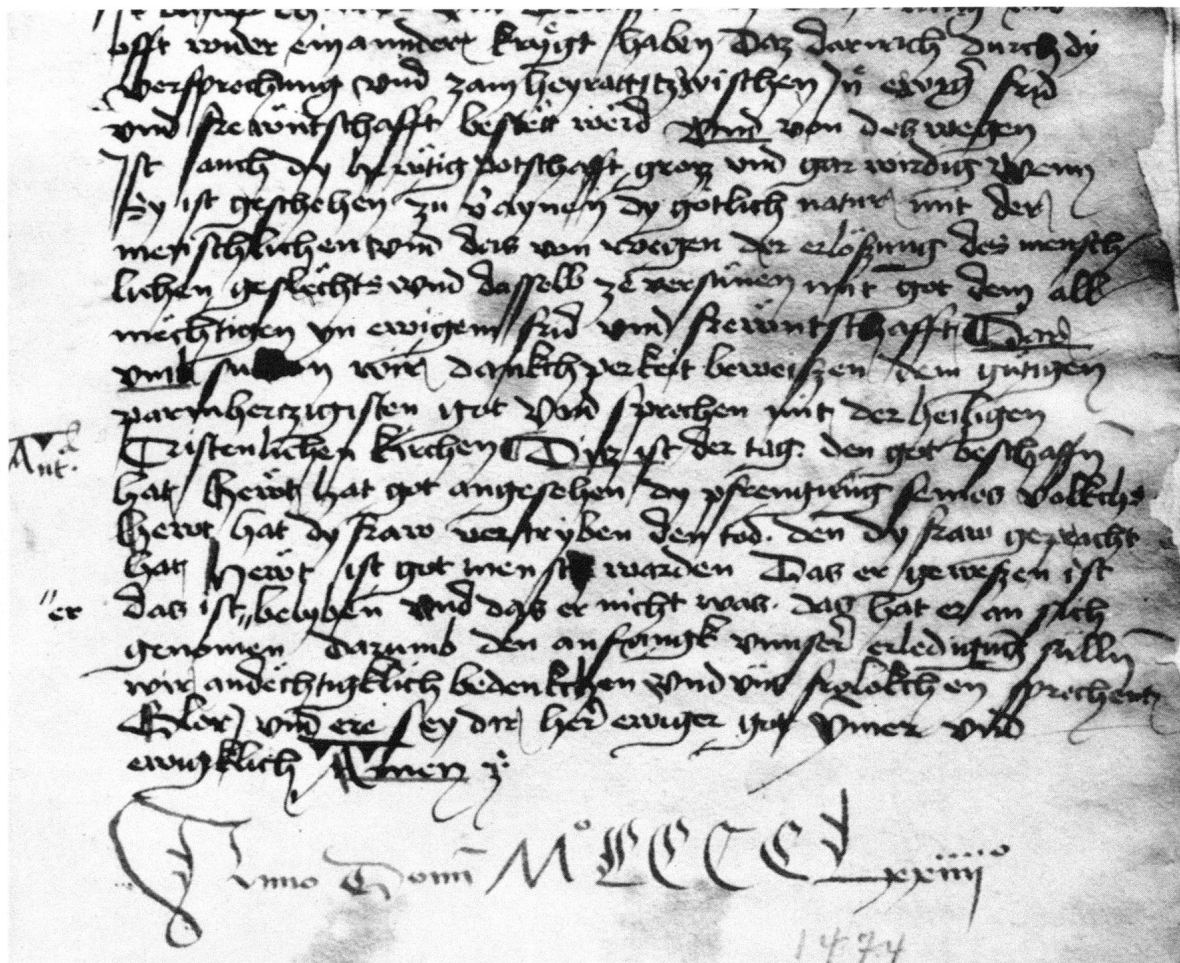 offt wider einannder krÿgt haben Daz darnach durch dy
versprechung vnd zam heyratt tzwischen In ewig frid
vnd frewntschafft bestett werd Vnd von deswegen
Ist auch dy hewtig potschafft grozz vnd gar wirdig Wenn
Sy ist geschehen zu v̈aynen dy gotlich natur mit der
menschlichen vnd das von wegen der erlösung des mensch
lichen geslächts vnd dasselb ze versünen mit got dem all
mechtigen yn ewigem frid vnd frewntschafft Dar
vmb süllen wir dankchperkeit beweiszen dem gütigen
parmhertzigisten got vnd sprechen mit der heiligen
Cristenlichen kirchen Ditz ist der tag. den got beschaffn
Ant.
hat Hewt hat got angesehen dy pfrengnüng seines volkchs
hewt hat dy fraw vertryben den tod. den dy fraw gepracht
hat Hewt ist got mensch warden Das er gewesen ist
"er das ist "belyben vnd das er nicht was. das hat er an sich
genomen Darumb den anfangk vnnser erledigung sülln
wir andechtigklich bedenkchen vnd vns frolokchen sprechent
Glori vnd ere sey dir her ewiger got ymer vnd
ewigklich Amen
Anno Domini Mº CCCC Lxxiiiiº
1474